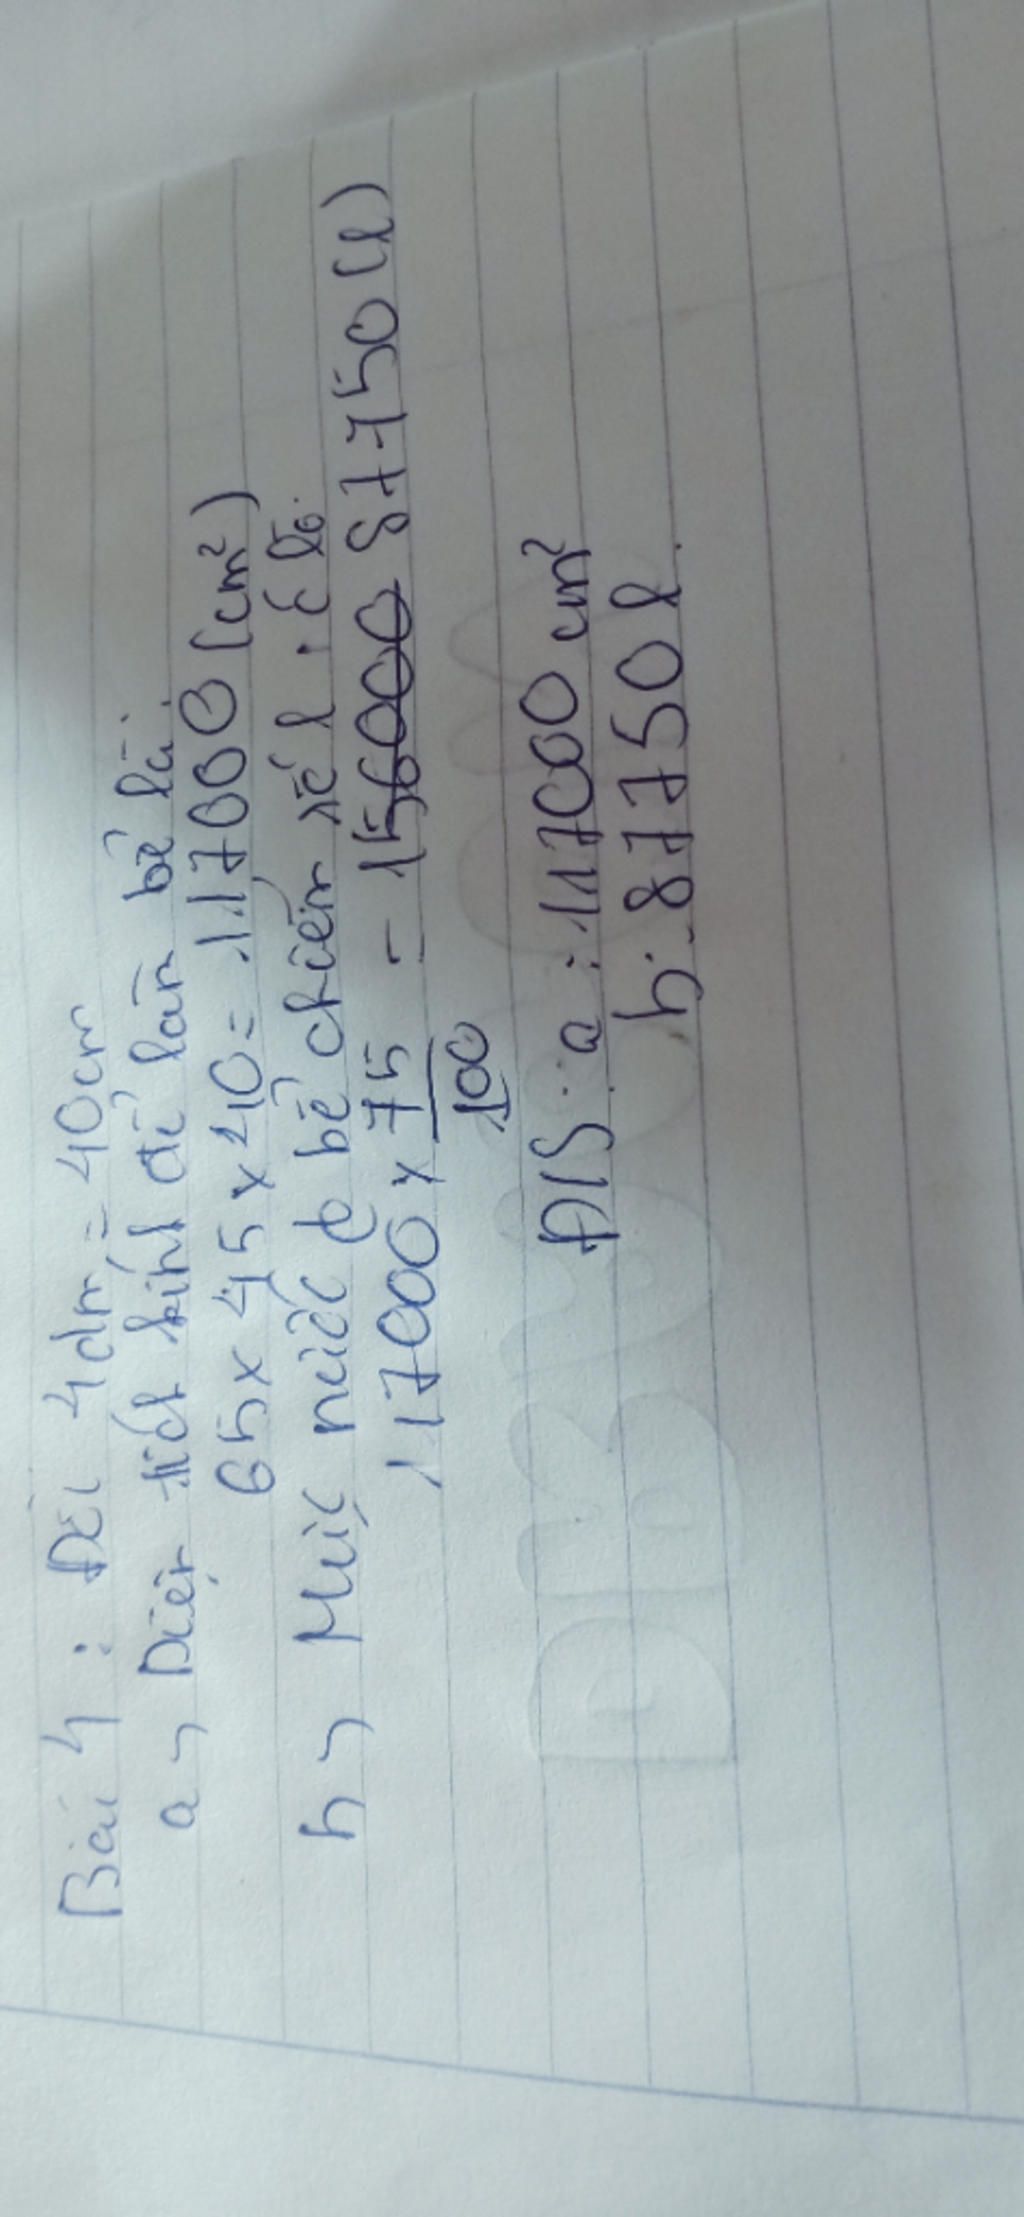 Bài 4: Đổi 4dm = 40cm
a, Diện tích kính để làm bể là:
65 x 45 x 40 = 117000 (cm²)
b, Mực nước ở bể chiếm số l:
117000 x 75/100 = 15600 87750 (l)
Đ/S: a: 117000 cm²
b: 87750 l